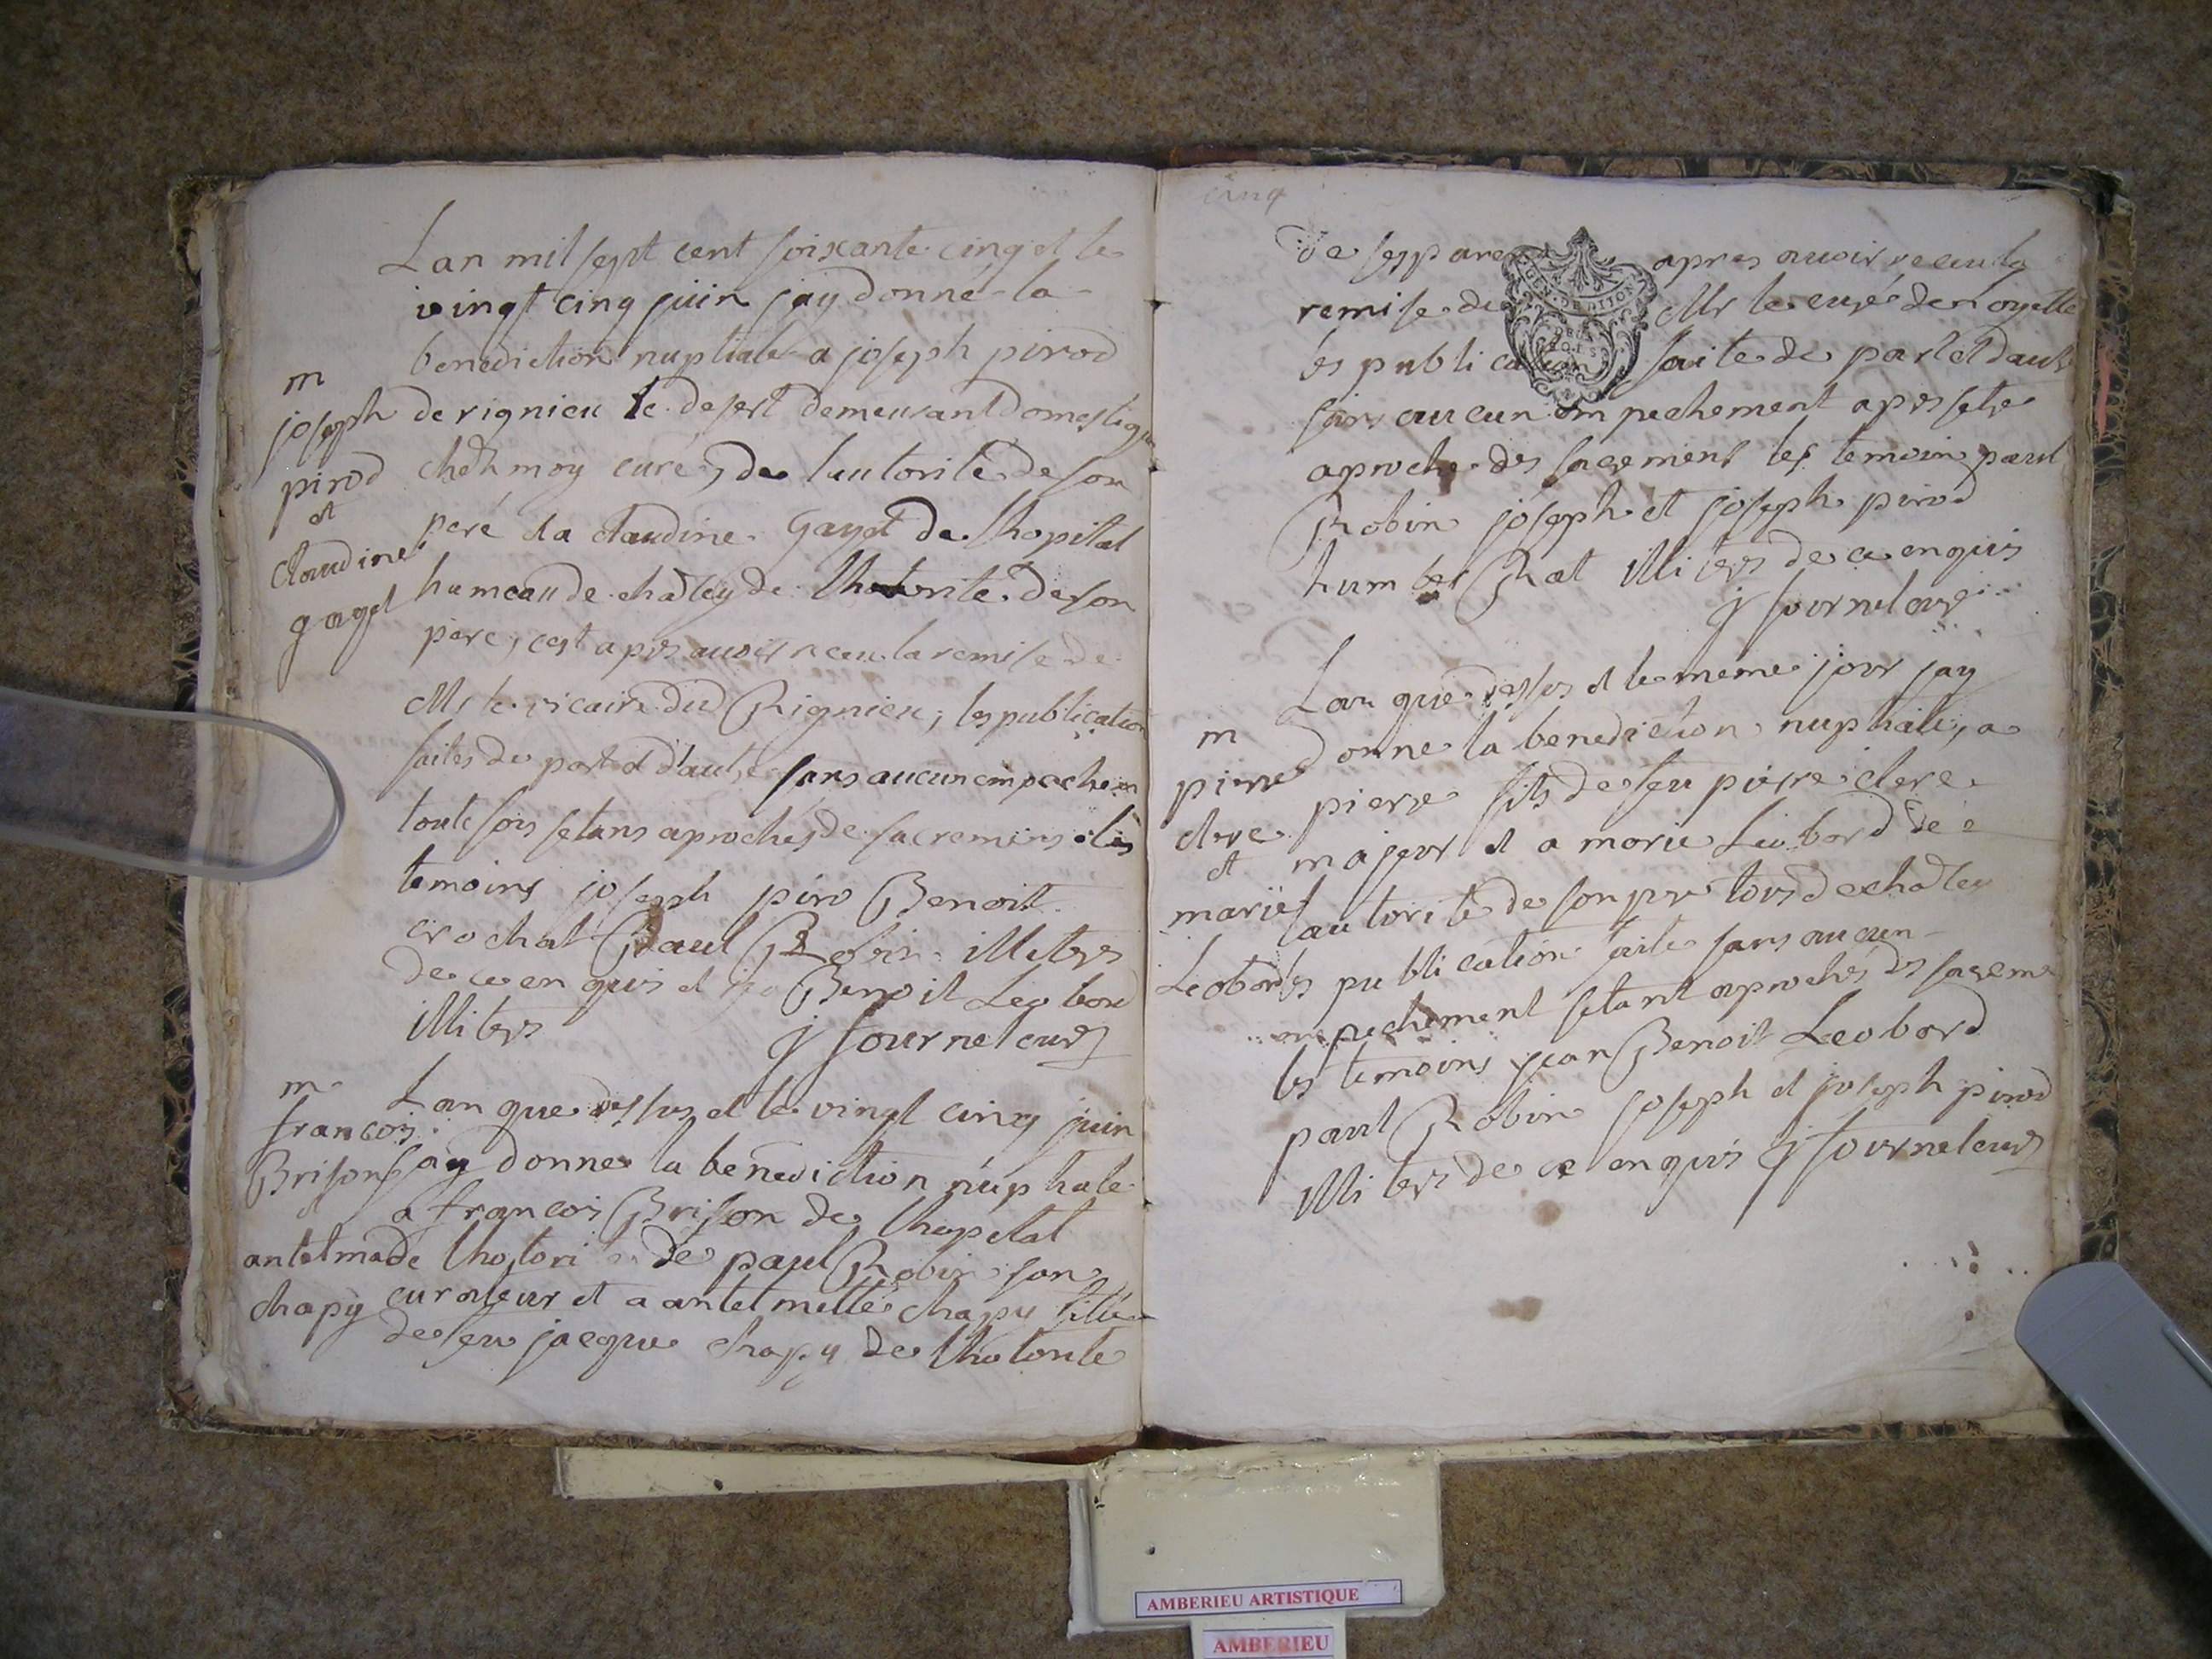 Lan mil sept cent soixante cinq et le
vingt cinq juin jay donné la
benediction nuptiale a joseph pirod
m
joseph
pirod
et
claudine
gayet
de rignieu le desert demeurant domestique
cheth moy curé, de lautorité de son
peré et a claudine gayet de lhopital
hameau de chatley de lhotorité de son
pere, cest apres auoir receu la remise de
Mr le vicaire du Rignieu, les publication
faites de part et dautre sans aucun empechem
toutefois setans aprochés de sacremens les
temoins joseph piro Benoit
crochat Paul Robin illiters
de ce enquis et Benoit Leobord
illiters j fourne leurs
m
francois
Brison
et
antelma
chapy
Lan que dessus et le vingt cinq juin
jay donné la benediction nuptiale
a francois Brison de lhopital
de lhotori de paul Robin son
curateur et a antelmette chapy fille
de feu jacque chapy de lhotorité
cinq
de ses paren apres auoir receu la
remise de Mr le curé de loyette
les publication faite de part et dautre
sans aucun empechement apres setre
aproche des sacrement les temoin paul
Robin joseph et joseph pirod
humber Rat illiters de ce enquis
j fourneleurs
Lan que dessus et le meme jour jay
m
pierre
clere
et
marie
Leobord
donne la benediction nuptiale, a
pierre fils de feu pierre clere
majeur et a marie Leobord de
lautorité de son pere tous de chatley
les publication faite sans aucun
empechement setant aprochés des sacrem
les temoins jean Benoit Leobord
paul Robin joseph et joseph pirod
illiters de ce enquis j fourneleurs
AMBERIEU ARTISTIQUE
AMBERIEU